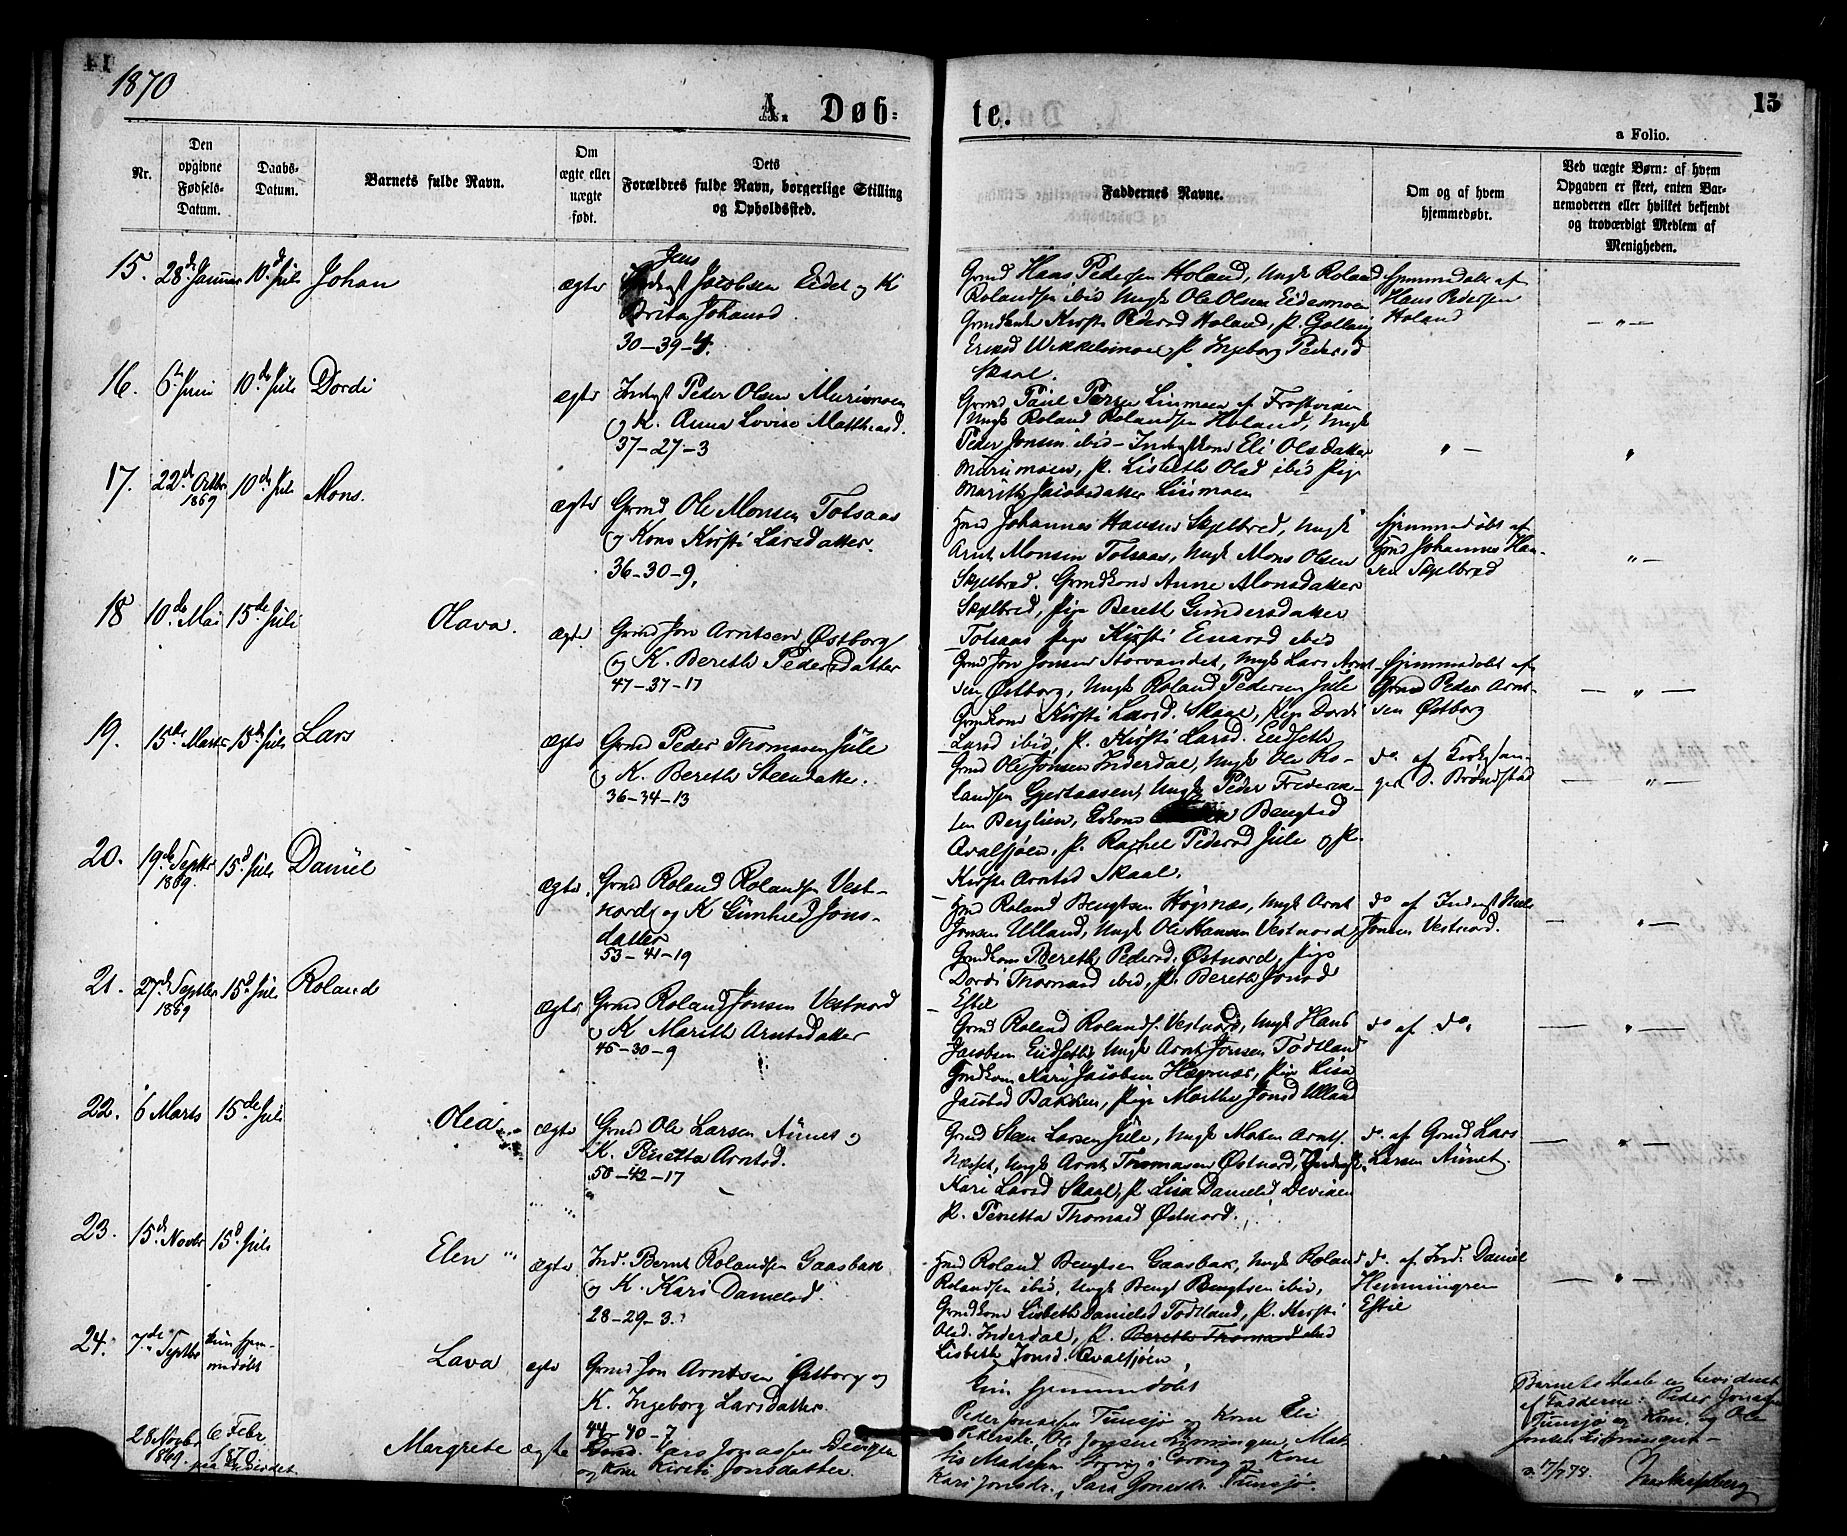 1870
A. Døb-
te.
15
a Folio.
Nr.
Den opgivne Fødsels-Datum.
Daabs-Datum.
Barnets fulde Navn.
Om ægte eller uægte født.
Dets Forældres fulde Navn, borgerlige Stilling og Opholdssted.
Faddernes Navne.
Om og af hvem hjemmedøbt.
Ved uægte Børn: af hvem Opgaven er skeet, enten Barnemoderen eller hvilket bekjendt og troværdigt Medlem af Menigheden.
15. 28de Januar 10de Juli Johan ægte
Jens
Jacobsen Eidet og K
Brita Johansd.
30-39-4.
Grmd Hans Pedersen Holand, Ungk Roland
Rolandsen ibid Ungk Ole Olsen Eidesmoen
Kirsti Pedersd Holand, P.
P. Ingeborg Pedersd
Skaal.
Hjemmedøbt af
Hans Pedersen
Holand
16. 6te Juni 10de Juli Dordi ægte
Indgst Peder Olsen Murumoen
og K. Anna Lovise Matthiasd.
37-27-3
Grmd Paul Linmoen af Frostviken
Ungk Roland Rolandsen Holand, Ungk
Peder Jonsen ibid - Eli Olsdatter
Murumoen, P. Lisbeth Olsd ibid Pige
Marith Jacobsdatter Linmoen
17. 22de Octbr 1869 10de Juli Mons. ægte
Grmd Ole Monsen Totsaas
og Kone Kirsti Larsdatter.
36-30-9.
Johannes Hansen Skjelbred, Ungk
Arnt Monsen Totsaas, Ungk Mons Olsen
Skjelbred. Grmdkone Anne Monsdatter
Skjelbred, Pige Bereth Gundersdatter
Totsaas Pige Kirsti Einarsd ibid
Hjemmedøbt af
Johannes Han-
sen Skjelbred
18 10de Mai 15de Juli Olava. ægte
Grmd Jon Arntsen Østborg
og K. Bereth Pedersdatter
47-37-17
Grmd Jon Jonsen Storvandet, Ungk Lars Arnt-
sen Østborg, Ungk Roland Pedersen Jule
Grmdkone Kirsti Larsd. Skaal, Pige Dordi
Larsd ibid, P. Kirsti Larsd. Eidseth
Hjemmedøbt af
Grmd Peder Arnt-
sen Østborg
19. 15de Marts 15de Juli Lars ægte
Grmd Peder Thomasen Jule
og K. Bereth Steendatter.
36-34-13
Grmd Ole Jonsen Inderdal, Ungk Ole Ro-
landsen Gjersaasen, Ungk Peder Fredrik-
sen Berglien, Bengtsd
Qvalsjøen, P. Rachel Pedersd Jule og P.
Kirsti Arntsd Skaal.
do. af Kirkesan-
ger D. Brøndstad
20. 19de Septbr 1869. 15d Juli Daniel ægte
Grmd Roland Rolandsen Vest-
nord og K Gunhild Jons-
datter
53-41-19
Roland Bengtsen Høgnæs, Ungk Arnt
Jonsen Ulland, Ungk Ole Hansen Vestnord
Grmdkone Bereth Pedersd. Østnord, Pige
Dordi Thomasd ibid, P. Bereth Jonsd
Estil
do af Indgst Niels
Jonsen Vestnord.
21. 27de Septbr 1869 15d Juli Roland ægte
Grmd Roland Jonsen Vestnord
og K. Marith Arntsdatter
45-30-9
Grmd Roland Rolands. Vestnord, Ungk Hans
Jacobsen Eidseth, Ungk Arnt Jonsen Todtland
Grmdkone Kari Jacobsen Høgnæs, Pige Lisa
Jacobsd Bakken, Pige Marthe Jonsd Ulland
do af do.
22. 6 Marts 15de Juli Olea ægte
Grmd Ole Larsen Aunet og
K. Peretta Arntsd.
50-42-17
Grmd Steen Larsen Jule, Ungk Morten Arnts.
Næsset, Ungk Arnt Thomasen Østnord, Indgstk.
Kari Larsd Skaal, P Lisa Danielsd Deviken
P. Peretta Thomasd Østnord.
do. af Grmd Lars
Larsen Aunet.
23. 15de Novbr 15d Juli Elen ægte
Ind. Bernt Rolandsen Gaasbak
og K. Kari Danielsd.
28-29-3.
Roland Bengtsen Gaasbak, Ungk Roland
Rolandsen ibid, Ungk Bengt Bengtsen ibid,
Grmdkone Lisbeth Danielsd Todtland, P. Kirsti
Olsd. Inderdal, P. Bereth Thomasd ibid
Lisbeth Jonsd. Qvalsjøen,
do. af Ind. Daniel
Hemmingsen
Estil
24. 7de Septbr kun hjem-
medøbt Lava ægte
Grmd Jon Arntsen Østborg og
K. Ingeborg Larsdatter.
44-40-7
Kun hjemmedøbt
28 Novbr 1869. 6 Febr 1870 Margrete ægte
Lars Jonassen Devigen
og Kone Kirsti Jonsdatter.
Peder Jonassen Tunsjø og Kone Eli
Pedersdr., Ole Jonsen Linninger, Mat-
tis Madsen i og Kone
Kari Jonsdr., Sara Jonasdr. Tunsjø.
Barnets Daab er bevidnet
af Fadderne: Peder Jonassen
Tunsjø og Kone og Ole
Jonsen
17/7 78.